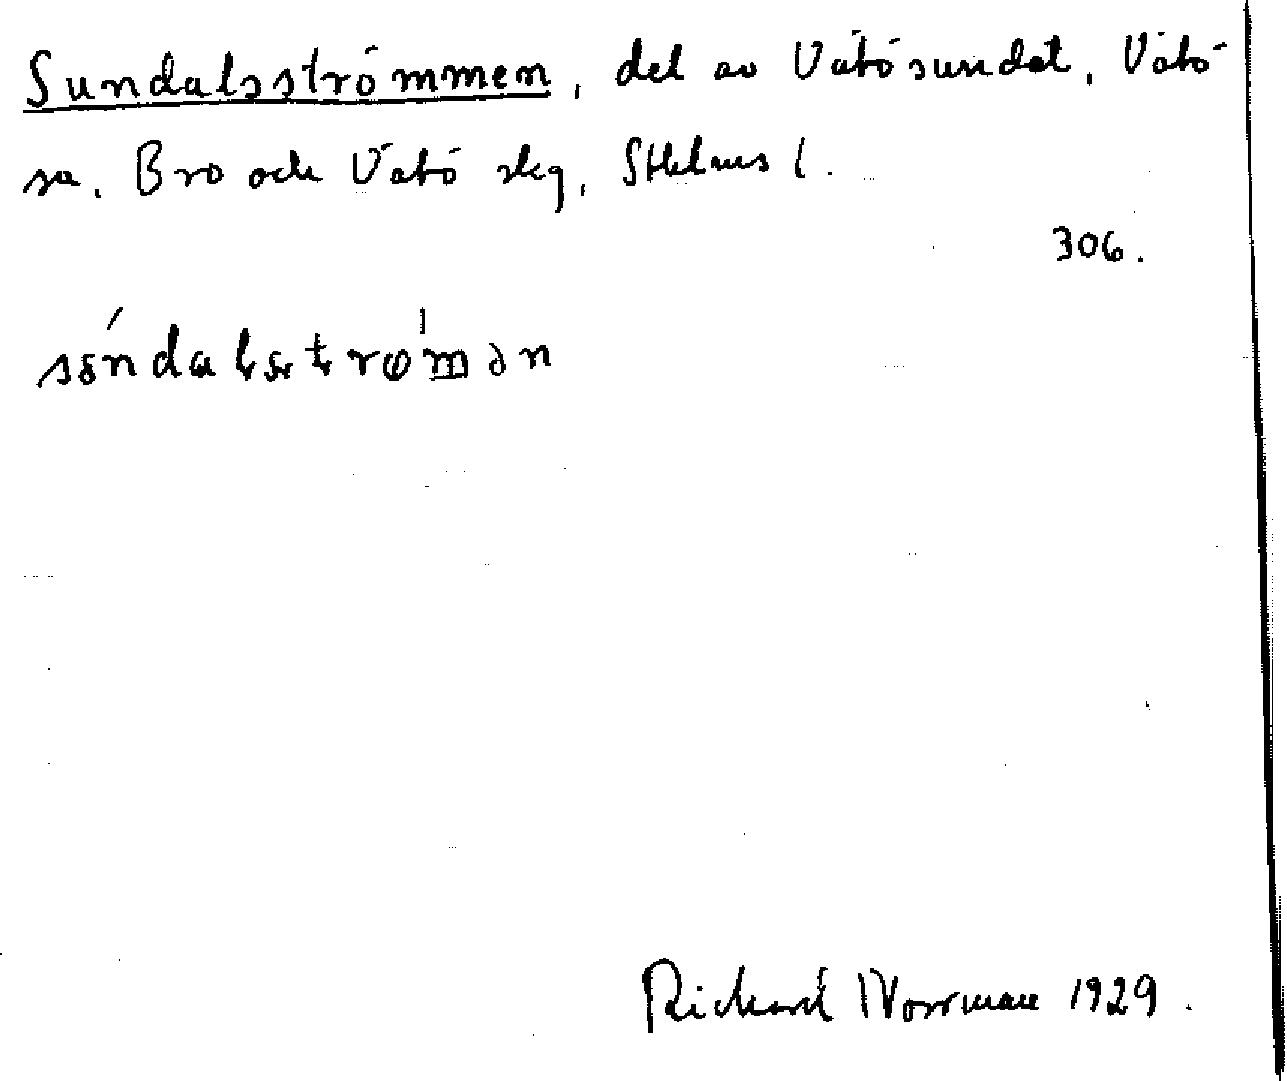 Sundalsströmmen, del av Vätösundet, Vätö
sn. Bro och Vätö skg, Sthlms l.
306.
Richard Norrman 1929.